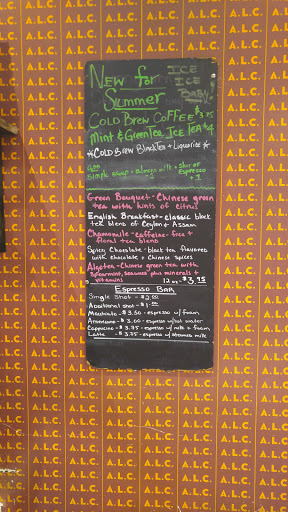 New for Summer
ICE ICE BABY!
COLD BREW COFFEE
Mint & Green Tea ICE TEA $4
COLD BREW Black Tea + Liquorice
Simple syrup
espresso
Green Bouquet - Chinese green
tea with hints of citrus
English Breakfast - classic black
tea blend of Ceylon & Assam
Chamomile - caffeine-free +
floral tea blend
Spicy Chocolate - black tea flavored
with chocolate + Chinese spices
Algotea - Chinese green tea with
spearmint, seaweed plus minerals &
vitamins 12 oz - $3.75
ESPRESSO BAR
Single Shot - $2.00
Additional shot - $1.00
Macchiato - $3.50 - espresso w/ foam
Americano - $3.00 - espresso w/ hot water
Cappuccino - $3.75 - espresso w/ milk & foam
Latte - $3.75 - espresso w/ steamed milk
A.L.C.